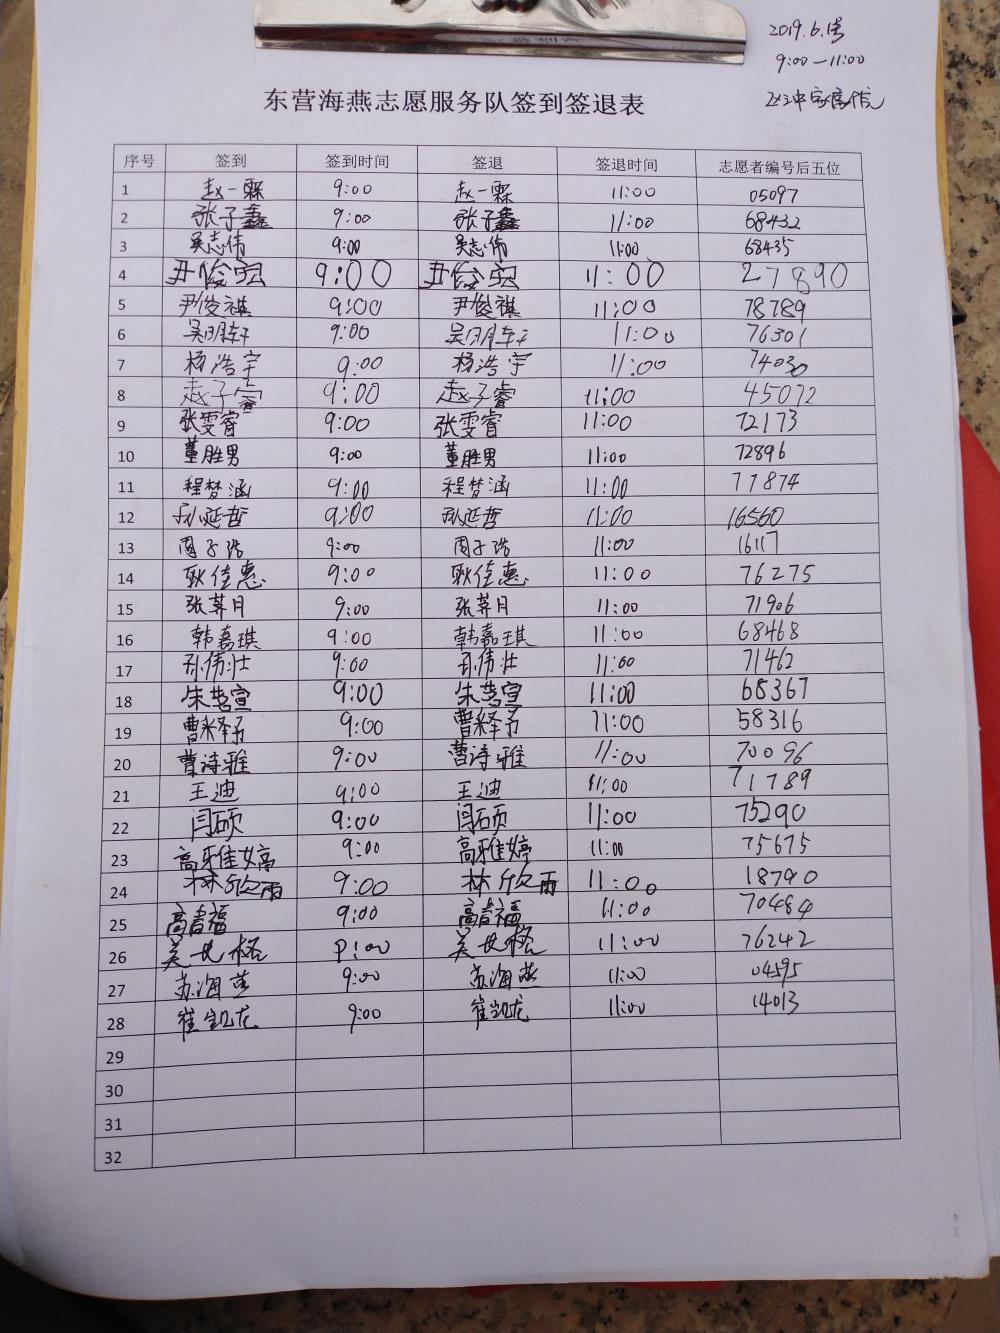 2019.6.1号
9:00—11:00
东营海燕志愿服务队签到签退表
序号 签到 签到时间 签退 签退时间 志愿者编号后五位
1 赵一霖 9:00 赵一霖 11:00 05097
2 张子鑫 9:00 张子鑫 11:00 68432
3 吴志伟 9:00 吴志伟 11:00 68435
4 尹俊 9:00 尹俊 11:00 27890
5 尹俊祺 9:00 尹俊祺 11:00 78789
6 吴明轩 9:00 吴明轩 11:00 76301
7 杨浩宇 9:00 杨浩宇 11:00 74030
8 赵子睿 9:00 赵子睿 11:00 45072
9 张雯睿 9:00 张雯睿 11:00 72173
10 董胜男 9:00 董胜男 11:00 72896
11 程梦涵 9:00 程梦涵 11:00 77874
12 孙延哲 9:00 孙延哲 11:00 16560
13 周子浩 9:00 周子浩 11:00 16117
14 耿佳惠 9:00 耿佳惠 11:00 76275
15 张荞月 9:00 张荞月 11:00 71906
16 韩嘉琪 9:00 韩嘉琪 11:00 68468
17 孙伟壮 9:00 孙伟壮 11:00 71462
18 朱慧宣 9:00 朱慧宣 11:00 68367
19 曹释予 9:00 曹释予 11:00 58316
20 曹诗雅 9:00 曹诗雅 11:00 70096
21 王迪 9:00 王迪 11:00 71789
22 闫硕 9:00 闫硕 11:00 75290
23 高雅婷 9:00 高雅婷 11:00 75675
24 林欣雨 9:00 林欣雨 11:00 18790
25 高福 9:00 高福 11:00 70484
26 9:00 11:00 76242
27 苏海燕 9:00 苏海燕 11:00 04595
28 崔凯龙 9:00 崔凯龙 11:00 14013
29
30
31
32